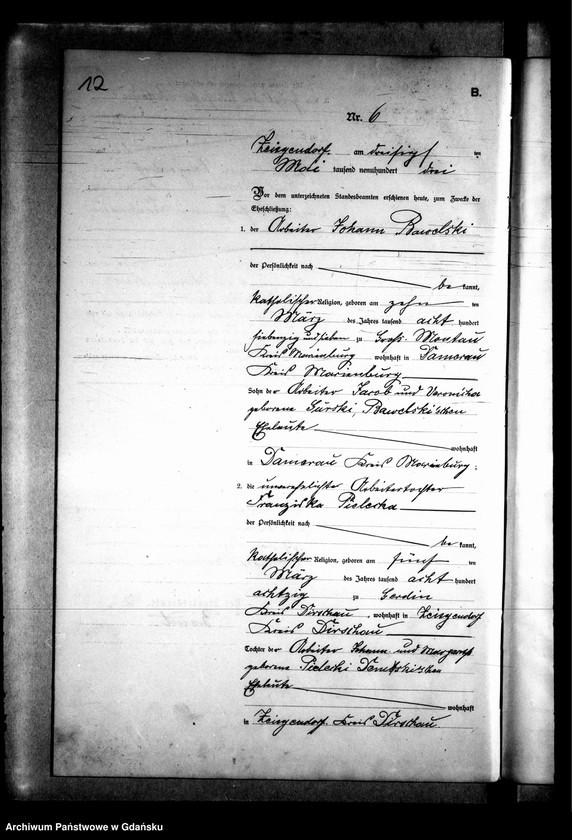 12
B.
Nr. 6
Zeisgendorf am dreißigs ten
Mai tausend neunhundert drei
Vor dem unterzeichneten Standesbeamten erschienen heute, zum Zwecke der
Eheschließung:
1. der Arbeiter Johann Bawelski
der Persönlichkeit nach
be kannt,
katholischer Religion, geboren am zehn ten
März des Jahres tausend acht hundert
siebenzig und sieben zu Groß Montau
Kreis Marienburg, wohnhaft in Damerau
Kreis Marienburg
Sohn der Arbeiter Jacob und Veronika
geborene Bawelski'schen
Eheleute
wohnhaft
in Damerau Kreis Marienburg;
2. die unverehelichte Arbeitertochter
Franziska
der Persönlichkeit nach
be kannt,
katholischer Religion, geboren am fünf ten
März des Jahres tausend acht hundert
achtzig zu Czerlin
Kreis Dirschau, wohnhaft in Zeisgendorf
Kreis Dirschau
Tochter der Arbeiter Johann und
geborene
Eheleute
wohnhaft
in Zeisgendorf Kreis Dirschau.
Archiwum Państwowe w Gdańsku